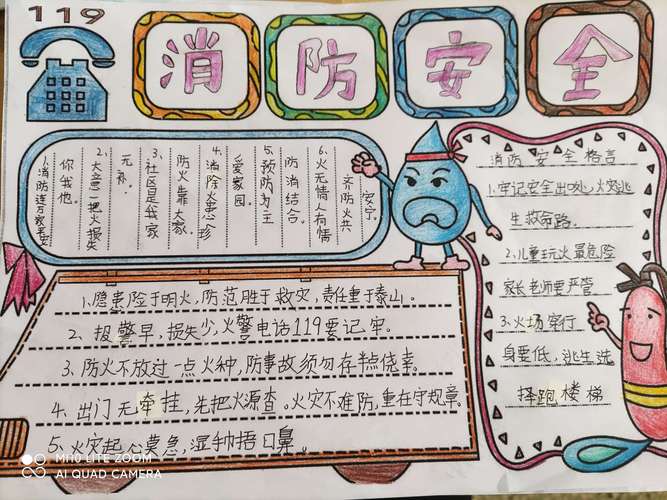 119
消防安全
1.消防连万家平安
你我他.
2.大意一把火损失
无补.
3.社区是我家
防火靠大家.
4.消除火患珍
爱家园.
5.预防为主
防消结合.
6.火无情人有情
齐防火共
安宁.
消防安全格言
1.牢记安全出口,火灾逃
生救命路.
2.儿童玩火最危险
家长老师要严管
3.火场穿行
身要低,逃生选
择跑楼梯
1.隐患险于明火,防范胜于救灾,责任重于泰山。
2、报警早,损失少,火警电话119要记牢。
3.防火不放过一点火种,防事故须勿存半点侥幸。
4.出门无牵挂,先把火源查。火灾不难防,重在守规章。
5.火灾起心莫急,湿手巾捂口鼻。
MI10 LITE ZOOM
AI QUAD CAMERA